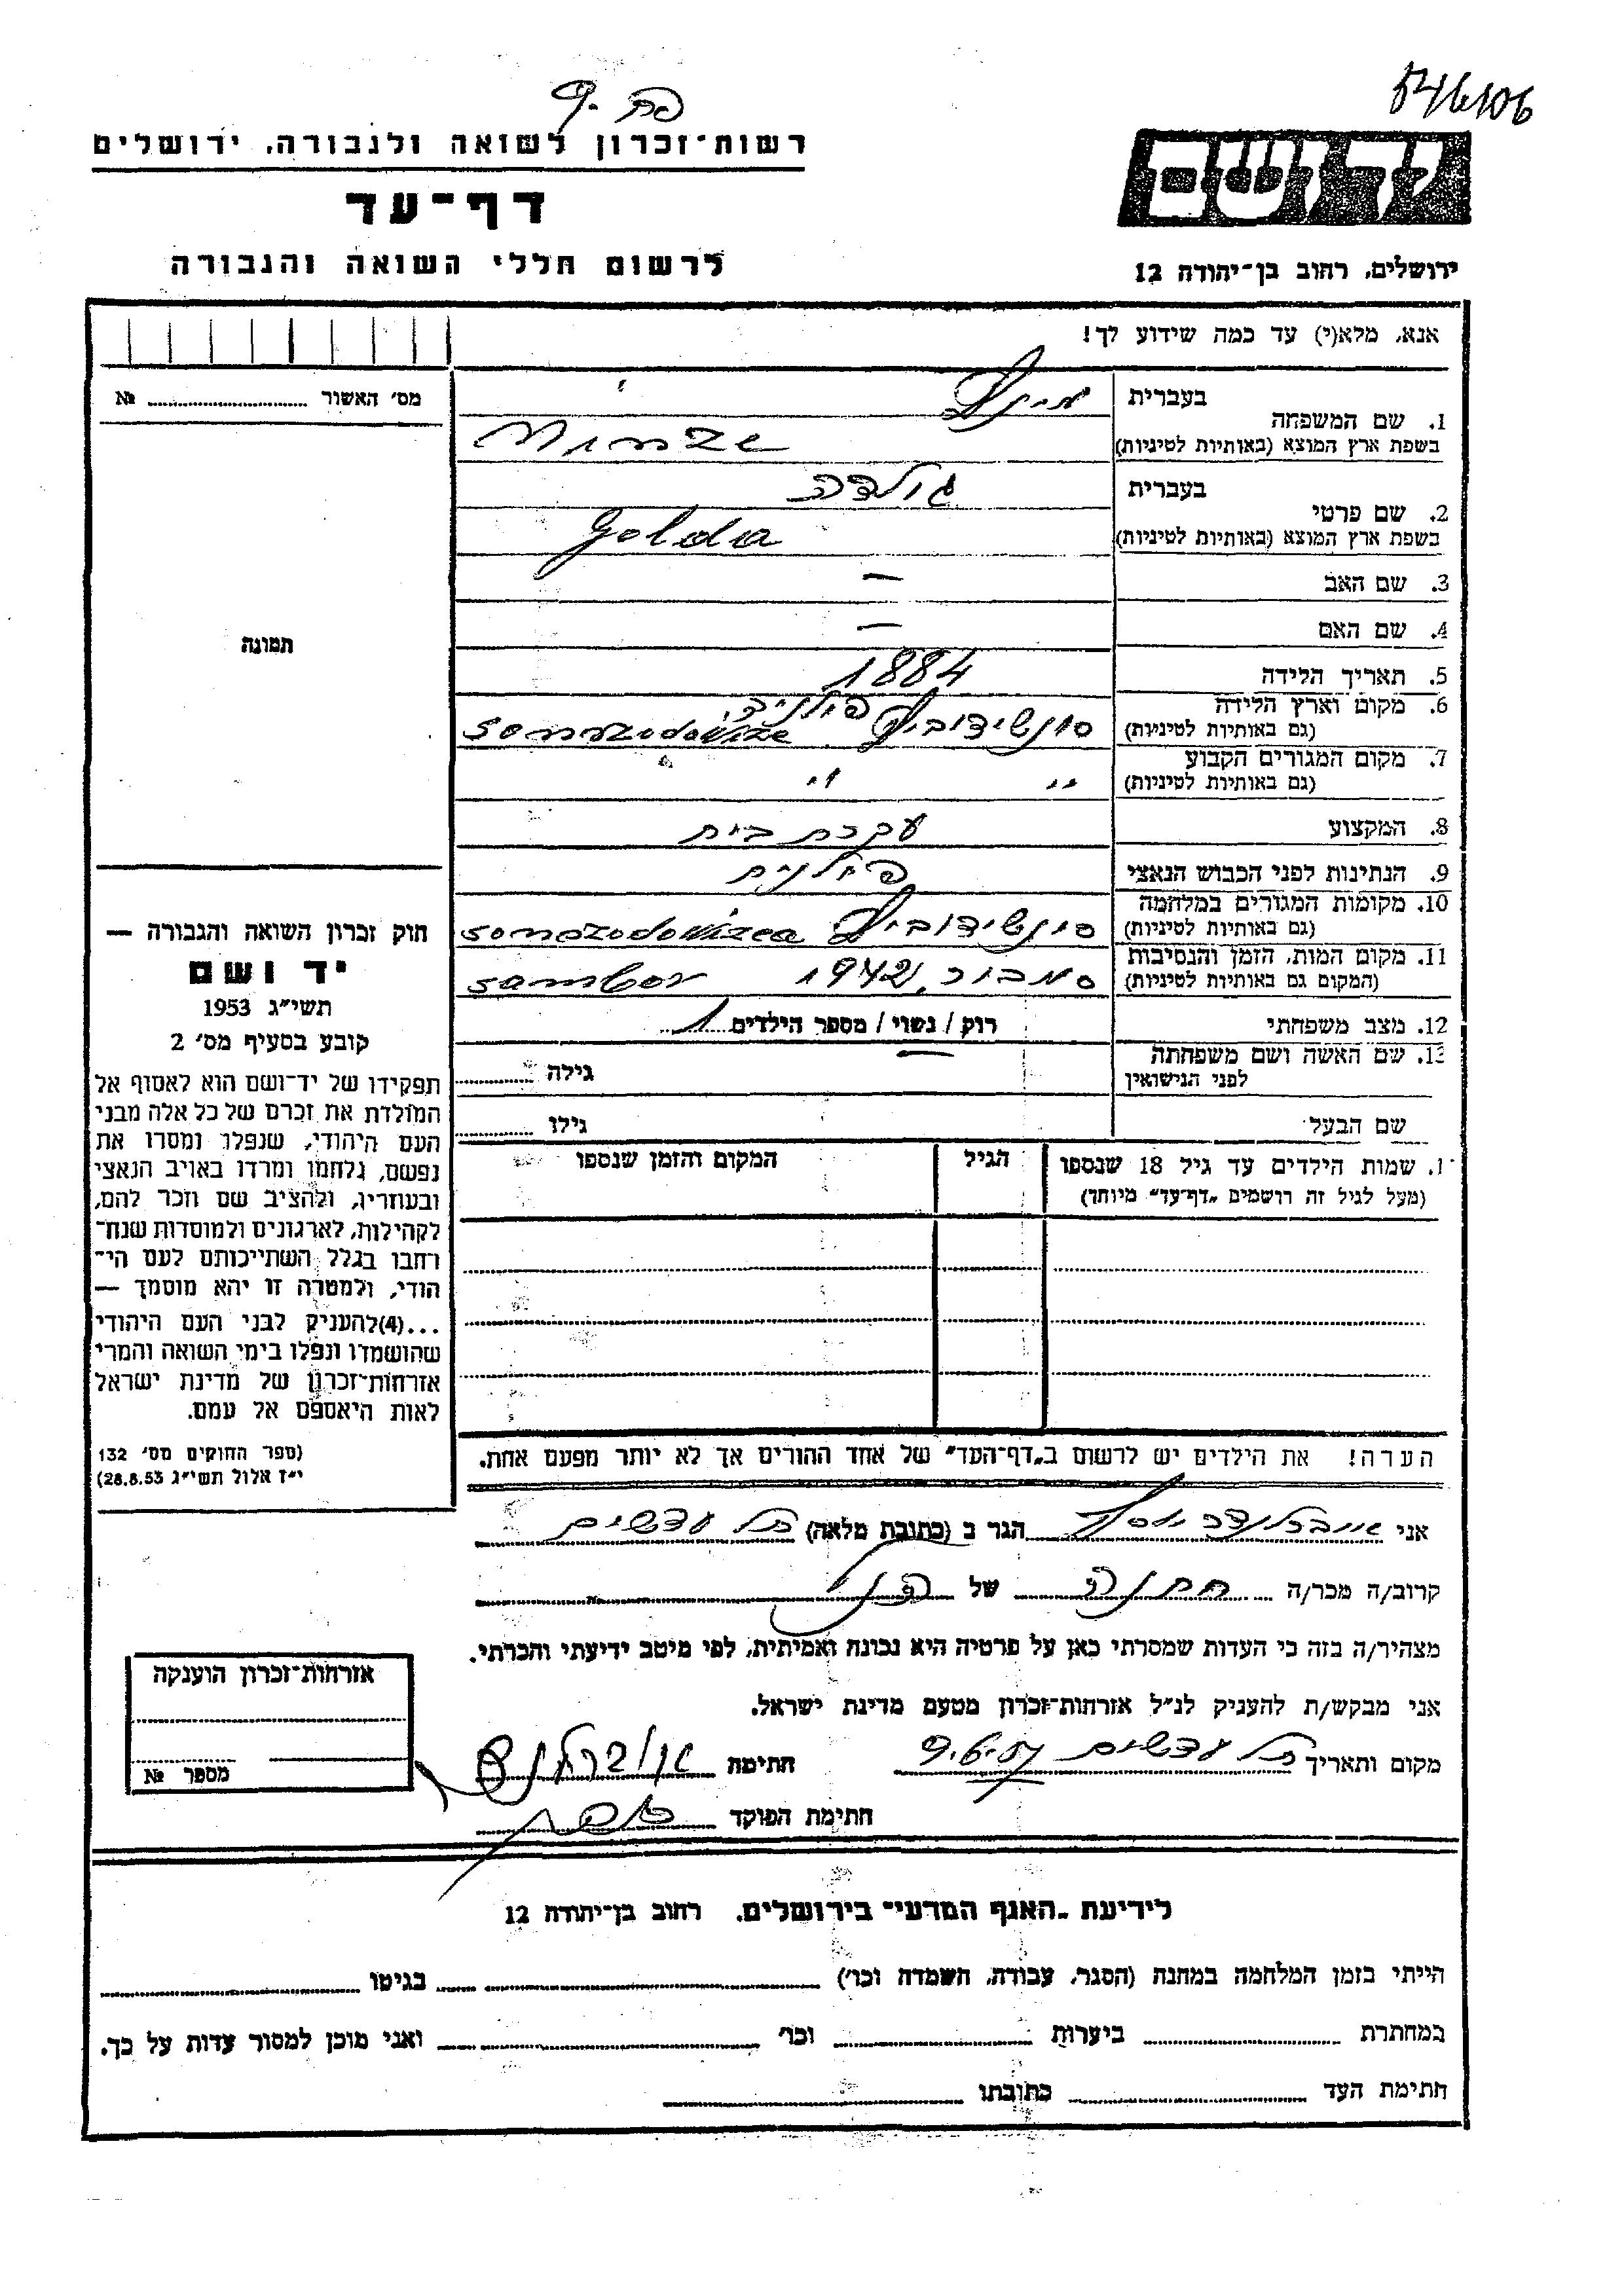 546106
רשות-זכרון לשואה ולגבורה, ירושלים
דף-עד
לרשום חללי השואה והגבורה
יד ושם
ירושלים, רחוב בן-יהודה 12
אנא, מלא(י) עד כמה שידוע לך!
מס' האשור ........ №
1. שם המשפחה
בעברית
בשפת ארץ המוצא (באותיות לטיניות) Minze
2. שם פרטי
בעברית גולדה
בשפת ארץ המוצא (באותיות לטיניות) Golda
3. שם האב —
4. שם האם —
תמונה
5. תאריך הלידה 1884
6. מקום וארץ הלידה
(גם באותיות לטיניות) פולניה
7. מקום המגורים הקבוע
(גם באותיות לטיניות) " "
8. המקצוע עקרת בית
9. הנתינות לפני הכבוש הנאצי פולנית
10. מקומות המגורים במלחמה
(גם באותיות לטיניות)
11. מקום המות, הזמן והנסיבות
(המקום גם באותיות לטיניות) סמבור, 1942 Sambor
12. מצב משפחתי רוק / נשוי / מספר הילדים 1
13. שם האשה ושם משפחתה
לפני הנישואין — גילה
שם הבעל גילו
חוק זכרון השואה והגבורה —
יד ושם
תשי״ג 1953
קובע בסעיף מס' 2
תפקידו של יד-ושם הוא לאסוף אל
המולדת את זכרם של כל אלה מבני
העם היהודי, שנפלו ומסרו את
נפשם, נלחמו ומרדו באויב הנאצי
ובעוזריו, ולהציב שם וזכר להם,
לקהילות, לארגונים ולמוסדות שנח-
רבו בגלל השתייכותם לעם הי-
הודי, ולמטרה זו יהא מוסמך —
...(4)להעניק לבני העם היהודי
שהושמדו ונפלו בימי השואה והמרי
אזרחות-זכרון של מדינת ישראל
לאות היאספם אל עמם.
(ספר החוקים מס' 132
י״ז אלול תשי״ג 28.8.53)
שמות הילדים עד גיל 18 שנספו הגיל המקום והזמן שנספו
(מעל לגיל זה רושמים „דף-עד" מיוחד)
הערה! את הילדים יש לרשום ב„דף-העד" של אחד ההורים אך לא יותר מפעם אחת.
אני יוסף הגר ב (כתובת מלאה) תל עדשים
קרוב/ה מכר/ה של
מצהיר/ה בזה כי העדות שמסרתי כאן על פרטיה היא נכונה ואמיתית, לפי מיטב ידיעתי והכרתי.
אני מבקש/ת להעניק לנ״ל אזרחות-זכרון מטעם מדינת ישראל.
מקום ותאריך תל עדשים חתימה
חתימת הפוקד
אזרחות-זכרון הוענקה
מספר №
לידיעת „האגף המדעי" בירושלים, רחוב בן-יהודה 12
הייתי בזמן המלחמה במחנה (הסגר, עבודה, השמדה וכו') בגיטו
במחתרת ביערות וכו' ואני מוכן למסור עדות על כך.
חתימת העד כתובתו